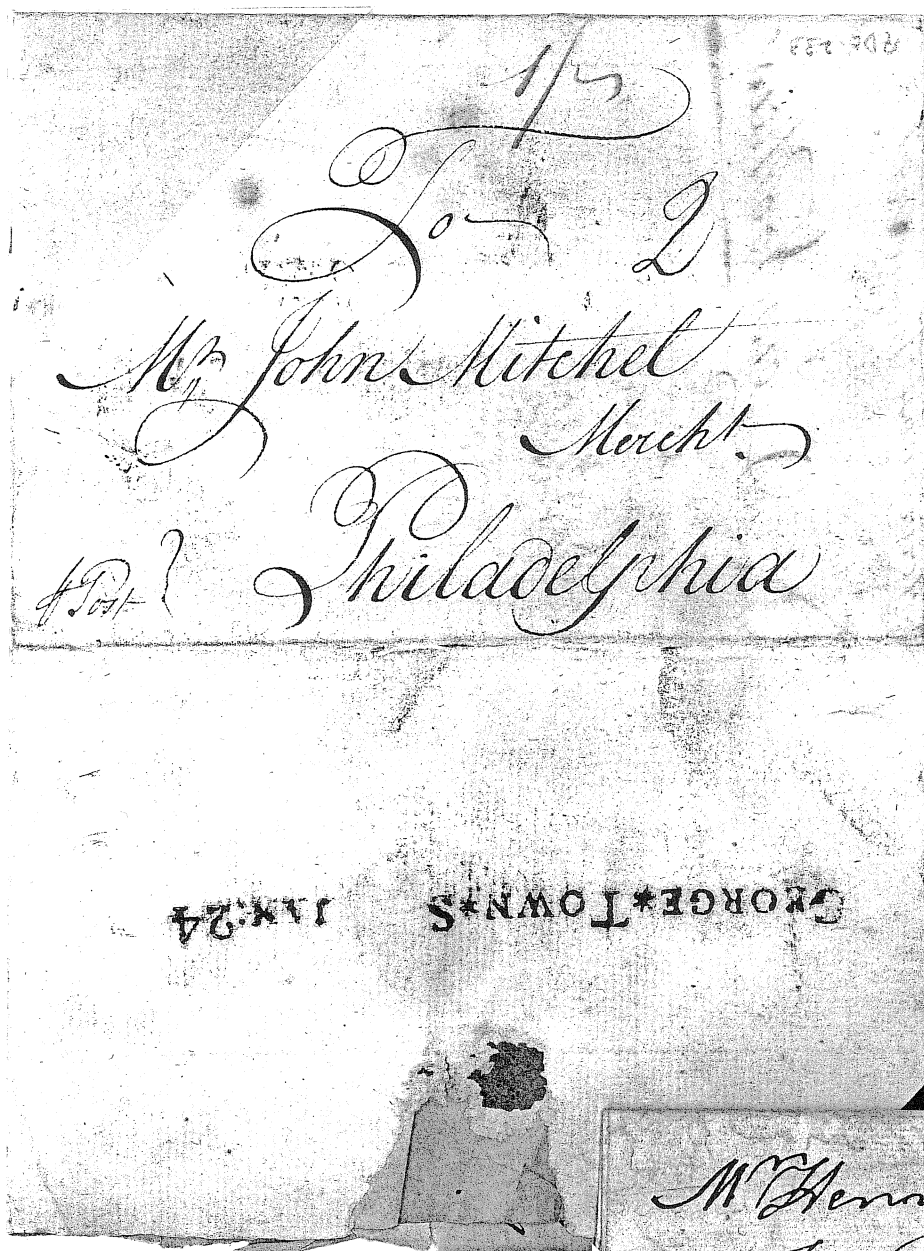 1/
To 2
Mr. John Mitchel
Mercht.
Philadelphia
Post
GEORGE*TOWN*S JAN:24
Mr Henr